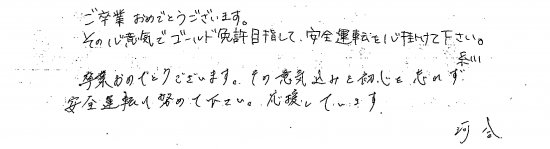 ご卒業おめでとうございます。
その心意気でゴールド免許目指して、安全運転を心掛けて下さい。
糸川
卒業おめでとうございます。その意気込みと初心を忘れず
安全運転に努めて下さい。応援しています
河合